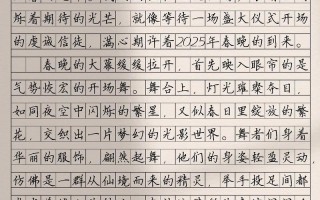 烁着期待的光芒，就像等待一场盛大仪式开场
的虔诚信徒，满心期许着2025年春晚的到来。
春晚的大幕缓缓拉开，首先映入眼帘的是
气势恢宏的开场舞。舞台上，灯光璀璨夺目，
如同夜空中闪烁的繁星，又似春日里绽放的繁
花，交织出一片梦幻的光影世界。舞者们身着
华丽的服饰，翩然起舞，他们的身姿轻盈灵动，
仿佛是一群从仙境而来的精灵，举手投足间都